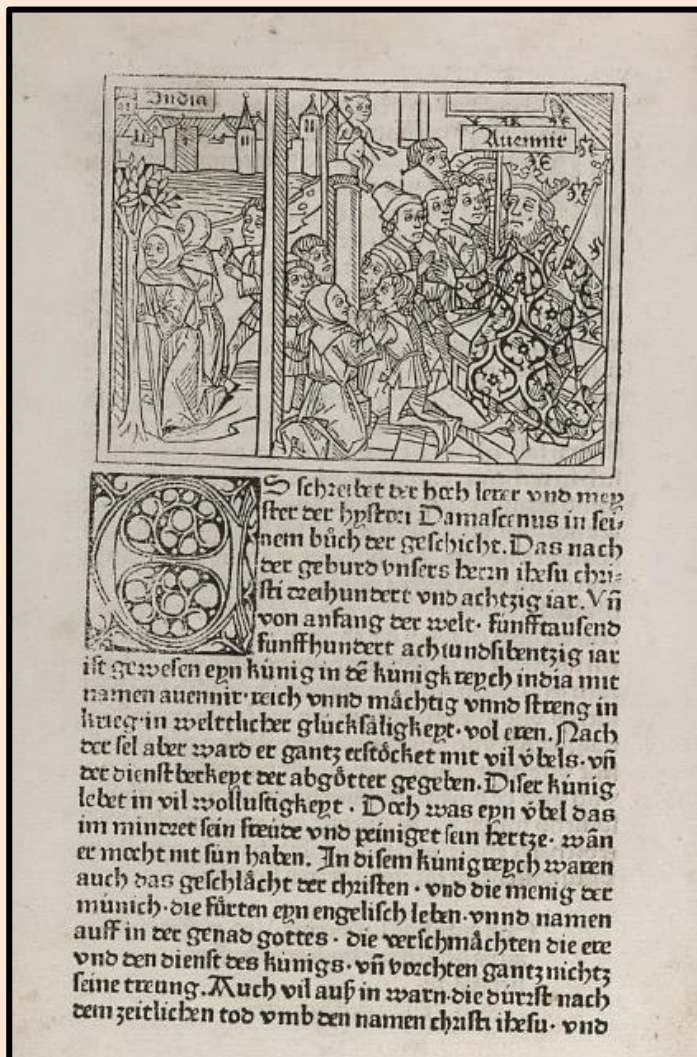 India
Auennir
ES schreibet der hoch lerer vnd mey
ster der hystori Damascenus in sei⸗
nem bůch der geschicht. Das nach
der geburd vnsers herrn ihesu chri⸗
sti dreihundert vnd achtzig iar. Vñ
von anfang der welt· funfftausend
funffhundert achtundsibentzig iar
ist gewesen eyn kúnig in dē kúnigkreych india mit
namen auennir· reich vnnd mächtig vnnd streng in
krieg· in welttlicher glúcksäligkeyt· vol eren. Nach
der sel aber ward er gantz erstöcket mit vil v́bels· vñ
der dienstberkeyt der abgötter gegeben. Diser kúnig
lebet in vil wollustigkeyt . Doch was eyn v́bel das
im mindret sein freúde vnd peiniget sein hertze· wān
er mocht nit sún haben. In disem kúnigreych waren
auch das geschlächt der christen · vnd die menig der
múnich· die fůrten eyn engelisch leben· vnnd namen
auff in der genad gottes · die verschmächten die ere
vnd den dienst des kúnigs· vñ vorchten gantz nichtz
seine treung. Auch vil auß in warn· die dúrrst nach
dem zeitlichen tod vmb den namen christi ihesu· vnd